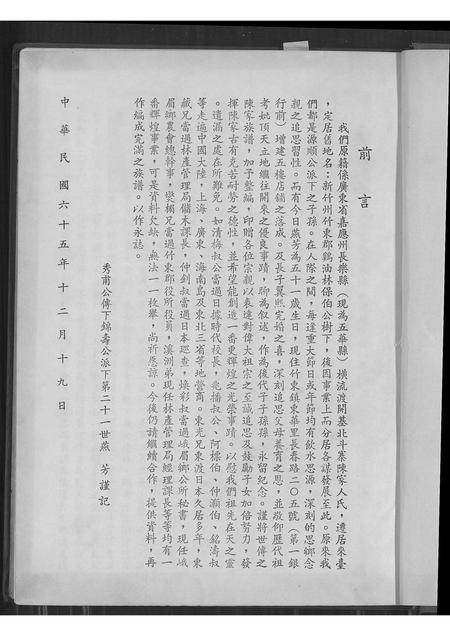 前言
我們原籍係廣東省嘉應州長樂縣（現為五華縣）橫流渡開基北斗寨陳家人氏，遷居來臺
，定居舊地名：新竹州竹東郡鷄油林保伯公樹下，後因事業上而分居各謀發展至此。原來我
們都是源順公派下之子孫。在人際之間，每逢重大節日或年節均有飲水思源，深刻的思鄉念
親之追思習性。而有今日燕芳為五十一歲生日，現住竹東鎮東華里長春路二○五號（第一銀
行前）增建五樓店鋪之落成。及長子翼熙完婚之喜，深刻追思父母養育之恩，並敬仰歷代祖
考妣頂天立地繼往開來之優良事蹟，聊為叙述，作為後代子子孫孫，永留紀念。謹將世傳之
陳家族譜，加予整編，印贈各位宗親，以表達對偉大祖宗之至誠追思及鼓勵子女加倍努力，發
揮陳家古有克苦耐勞之德性，並希望能創造一番更輝煌之光榮事蹟。以慰我們祖先在天之靈
。遺漏之處在所難免。如清梅叔公當過日據時代校長，兆播叔公、阿標伯、仲灝伯、銘濤叔
等走遍中國大陸，上海、廣東、海南島及東北三省等地營商。東光兄東渡日本久居多年，東
藏兄當過林產管理局儲木課長，仲釗叔當過日本巡查，煥彩叔當過峨眉鄉公所秘書，現任峨
眉鄉農會總幹事，樊楣兄當過竹東郡役所役員，漢洲弟現任林產管理局經理課長等等均有一
番輝煌事業，可是資料欠缺，無法一一枚舉，尚祈應諒。今後仍請繼續合作，提供資料，再
作編成完滿之族譜。以作永誌。
秀甫公傳下錦壽公派下第二十一世燕芳謹記
中華民國六十五年十二月十九日